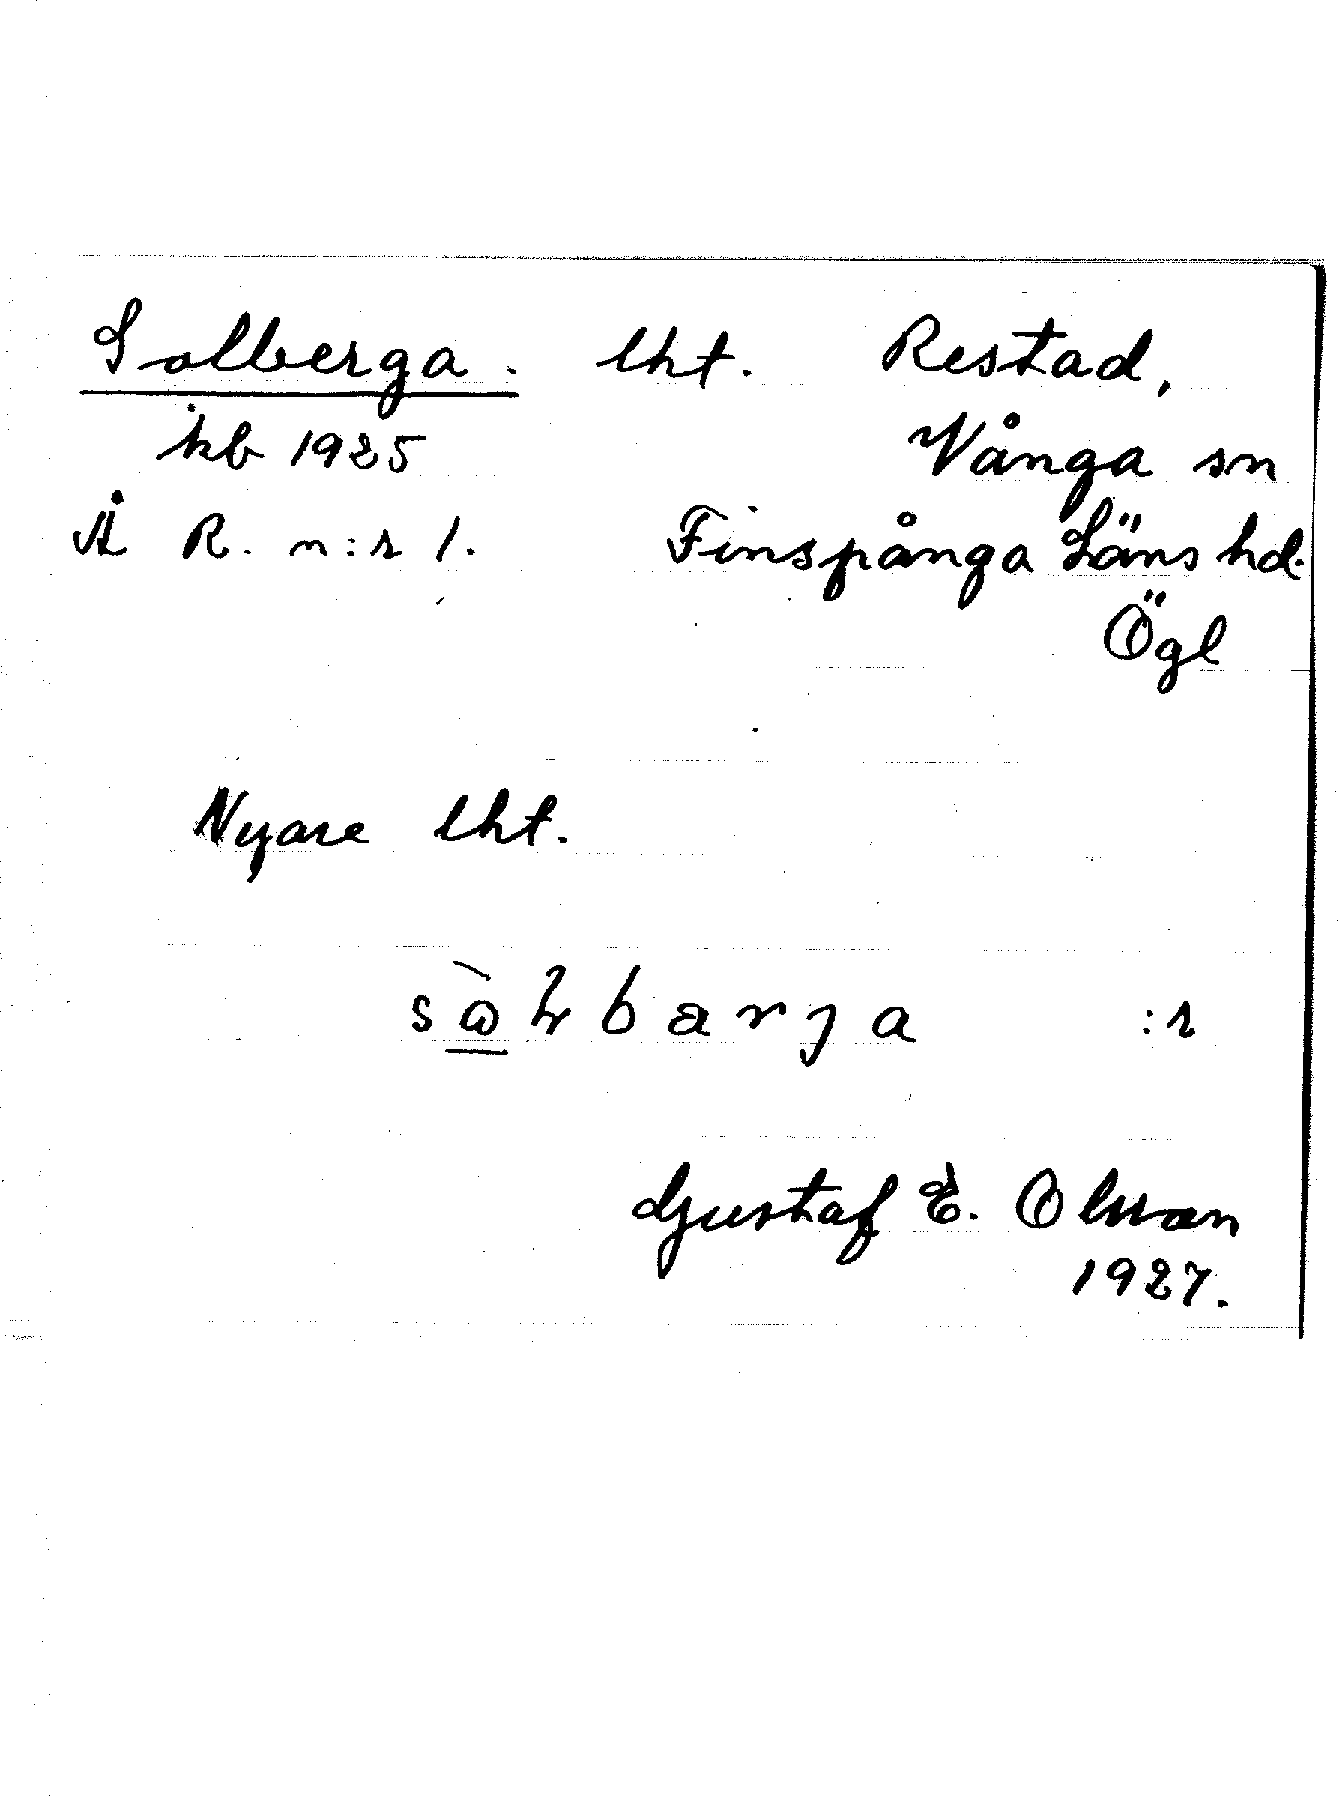 Solberga. lht. Restad,
kb 1925 Vånga sn
Å R. n:r 1. Finspånga Läns hd.
Ögl
Nyare lht.
:r
Gustaf E. Olsson
1927.